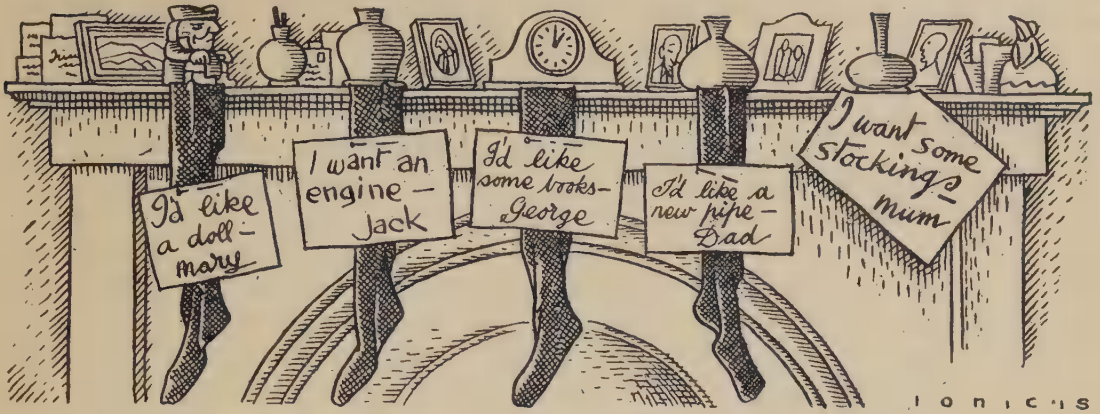 I'd like
a doll –
Mary
I want an
engine –
Jack
I'd like
some books –
George
I'd like a
new pipe –
Dad
I want some
stockings –
mum
ionicus